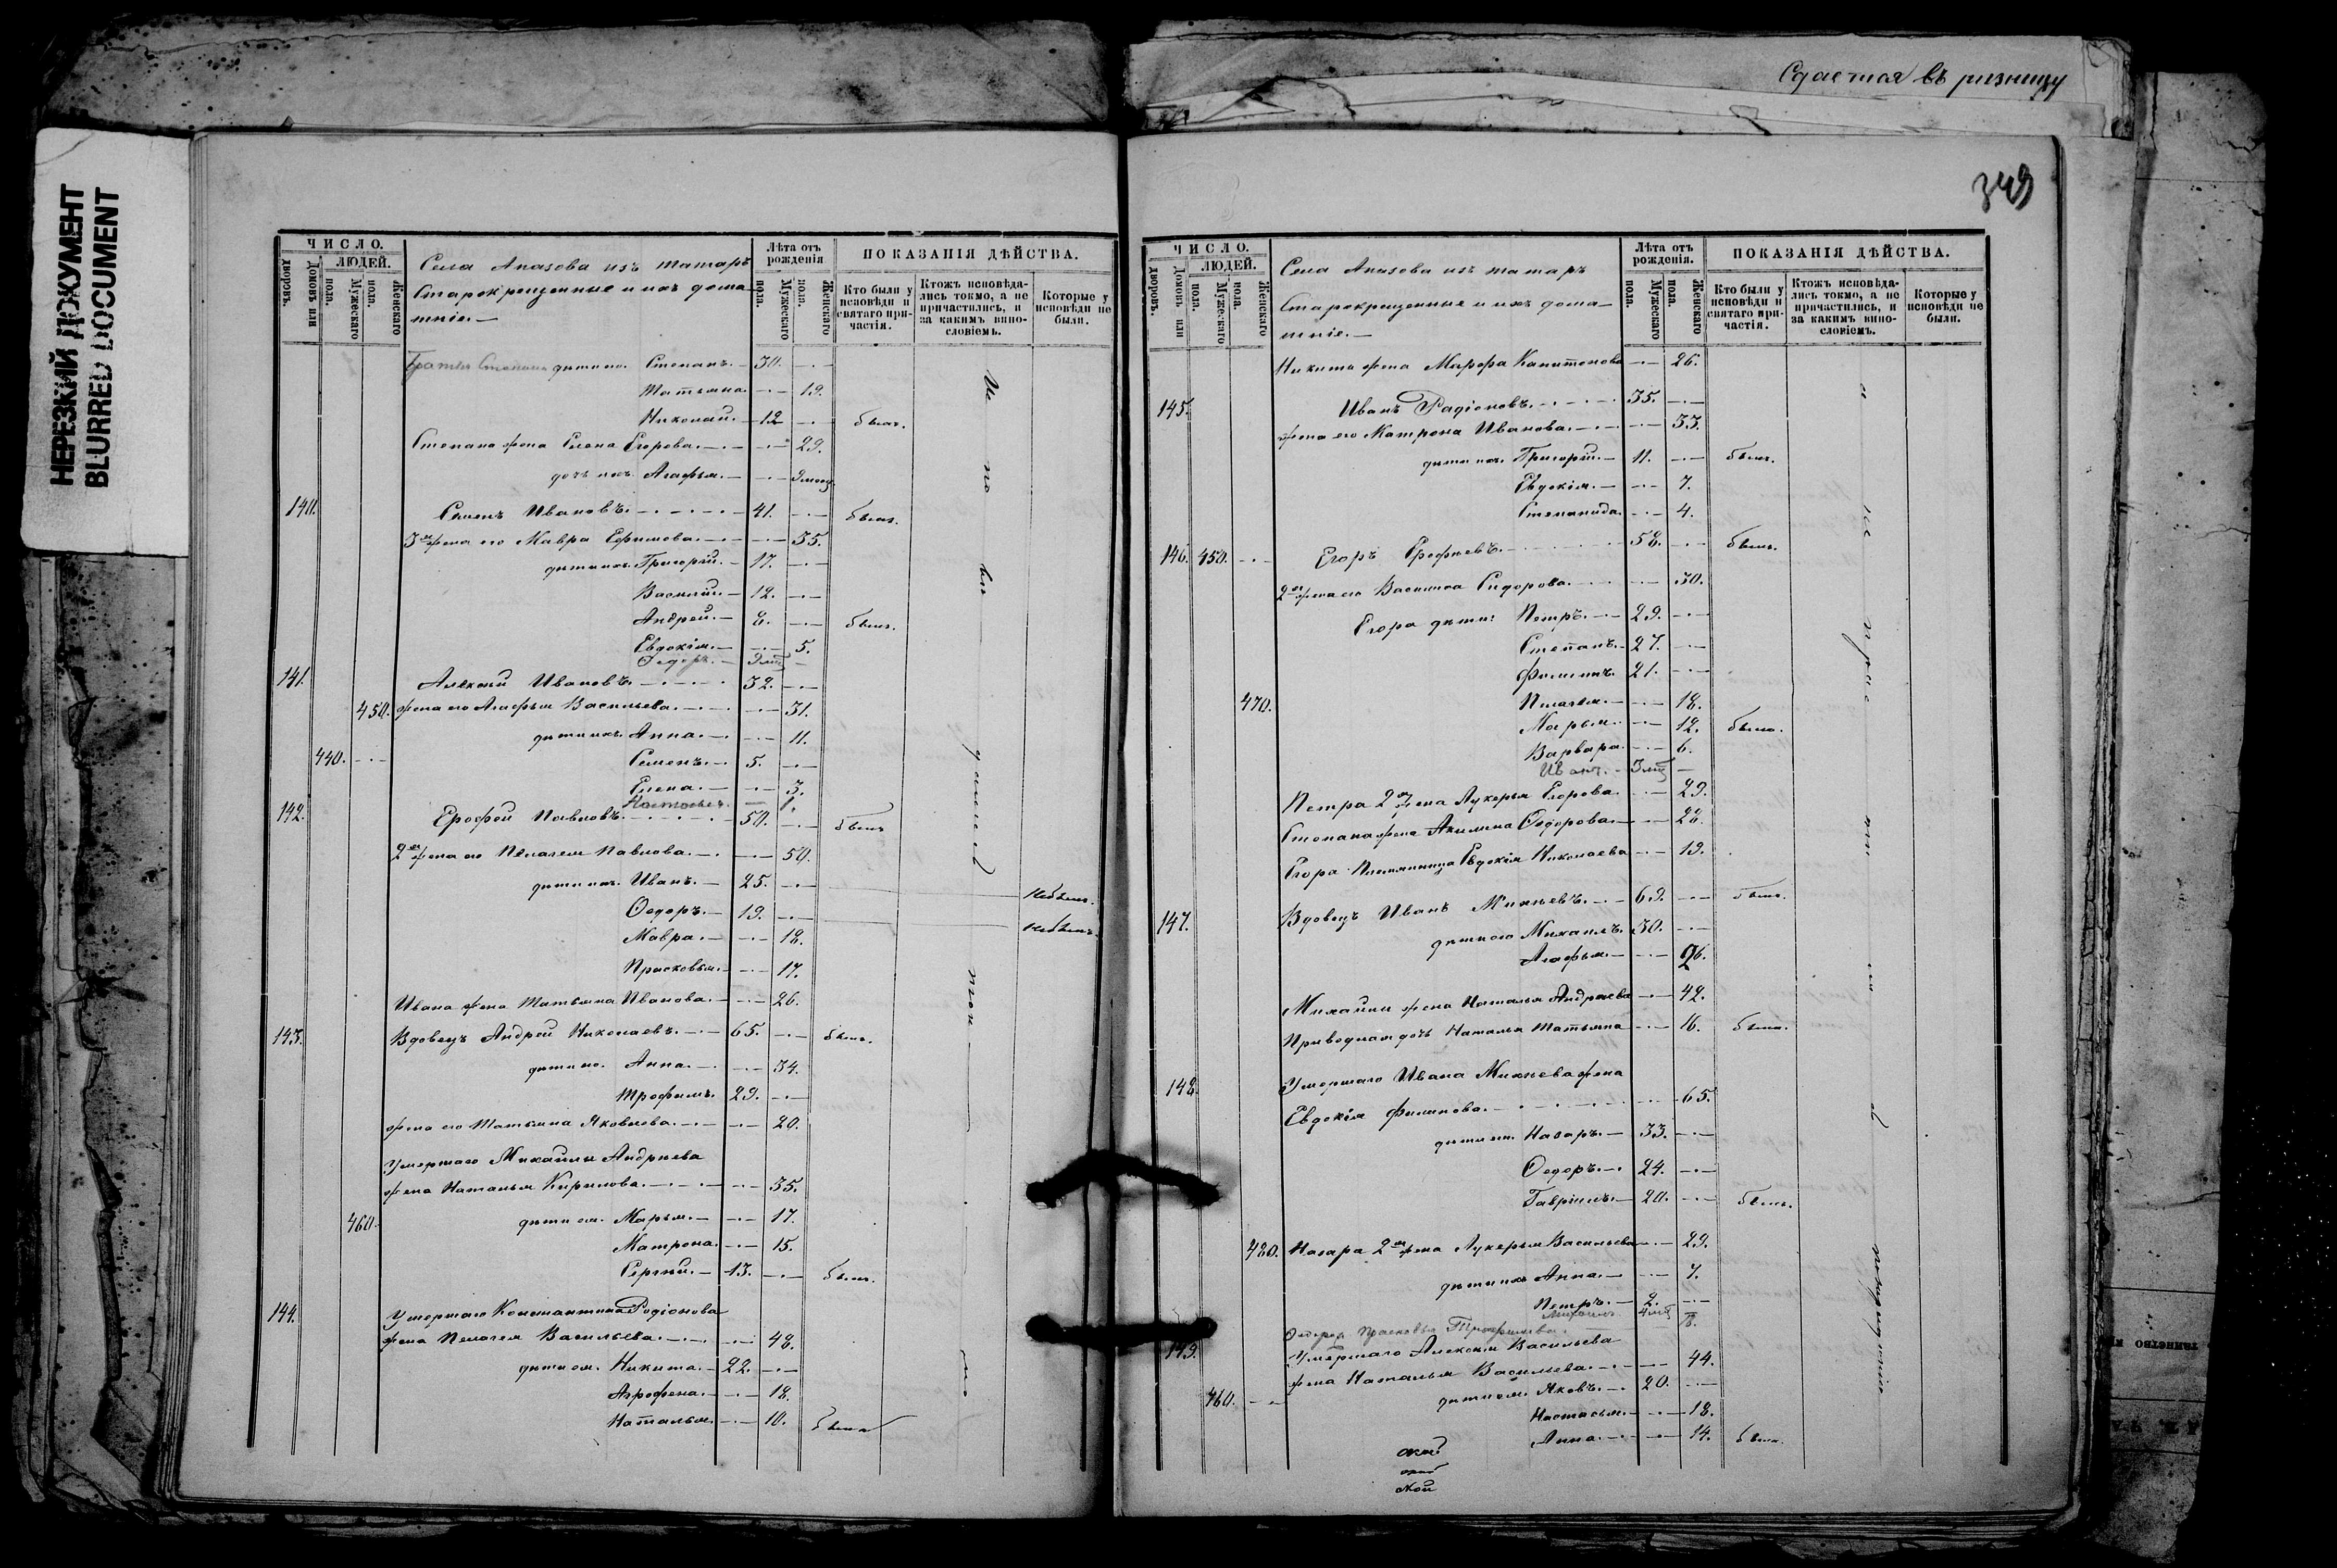 НЕРЕЗКИЙ ДОКУМЕНТ
BLURRED DOCUMENT
ЧИСЛО.
ЛЮДЕЙ.
Дворовъ.
Домовъ или
Мужескаго пола.
Женскаго пола.
Села Апазова изъ татаръ
Старокрещенные и ихъ дома-
шніе.—
Лѣта отъ рожденія
Мужескаго пола.
Женскаго пола.
ПОКАЗАНІЯ ДѢЙСТВА.
Кто были у исповѣди и святаго причастія.
Ктожъ исповѣдались токмо, а не причастились, и за какимъ винословіемъ.
Которые у исповѣди не были.
дѣти его Степанъ.— 30.
Татьяна.— 19.
Николай.— 12 былъ.
Степана жена Елена Егорова.— 29.
дочь ихъ Агафья.—
140. Семенъ Ивановъ.— 41. былъ.
3я жена его Мавра Ефимова.— 35.
дѣти ихъ Григорій.— 17.
Василій.— 12.
Андрей.— 8. былъ.
Евдокія.— 5.
Ѳедоръ.—
141. Алексѣй Ивановъ.— 32.
450. жена его Агафья Васильева.— 31.
дѣти ихъ Анна.— 11.
440. Семенъ.— 5.
Елена.— 3.
Настасья 1.
142. Ерофей Павловъ.— 50. былъ
2я жена его Пелагея Павлова.— 50.
дѣти ихъ Иванъ.— 25. небылъ.
Ѳедоръ.— 19. небылъ.
Мавра.— 18.
Прасковья.— 17.
Ивана жена Татьяна Иванова.— 26.
143. Вдовецъ Андрей Николаевъ.— 65. былъ.
дѣти его Анна.— 34.
Трофимъ. 29.
жена его Татьяна Яковлева.— 20.
Умершаго Михайлы Андреева
жена Наталья Кирилова.— 35.
460. дѣти ея Марья.— 17.
Матрона.— 15.
Сергѣй.— 13. былъ.
144. Умершаго Константина Родіонова
жена Пелагея Васильева.— 48.
дѣти ея Никита.— 22.
Агрофена.— 18.
Наталья.— 10. была
Сдается въ ризницу
349
ЧИСЛО.
ЛЮДЕЙ.
Дворовъ.
Домовъ или
Мужескаго пола.
Женскаго пола.
Села Апазова изъ татаръ
Старокрещенные и ихъ дома-
шніе.—
Лѣта отъ рожденія.
Мужескаго пола.
Женскаго пола.
ПОКАЗАНІЯ ДѢЙСТВА.
Кто были у исповѣди и святаго причастія.
Ктожъ исповѣдались токмо, а не причастились, и за какимъ винословіемъ.
Которые у исповѣди не были.
Никиты жена Марфа Капитонова 26.
145. Иванъ Радіоновъ.— 35.
жена его Матрона Иванова.— 33.
дѣти ихъ Григорій.— 11. былъ.
Евдокія.— 7.
Степанида. 4.
146. 450. Егоръ Ерофеевъ.— 58. былъ.
2я жена его Василиса Сидорова. 30.
Егора дѣти: Петръ.— 29.
Степанъ.— 27.
Филипъ. 21.
470. Пелагея.— 18.
Марья.— 12. была.
Варвара.— 6.
Иванъ.—
Петра 2я жена Лукерья Егорова. 29.
Степана жена Акилина Ѳедорова.— 28.
Егора племянница Евдокія Николаева 19.
147. Вдовецъ Иванъ Михѣевъ.— 69. былъ.
дѣти его Михаилъ. 30.
Агафья.— 26.
Михайлы жена Наталья Андреева 42.
Приводная дочь Натальи Татьяна 16. была.
148. Умершаго Ивана Михѣева жена
Евдокія Филипова.— 65.
дѣти ея Назаръ.— 33.
Ѳедоръ.— 24.
Гавріилъ.— 20. былъ.
480. Назара 2я жена Лукерья Васильева 29.
дѣти ихъ Анна.— 7.
Петръ.— 2.
Ѳедора Прасковья Трофимова
149. Умершаго Алексѣя Васильева
жена Наталья Васильева.— 44.
460. дѣти ея Яковъ.— 20.
Настасья.— 18.
Анна.— 14. была.